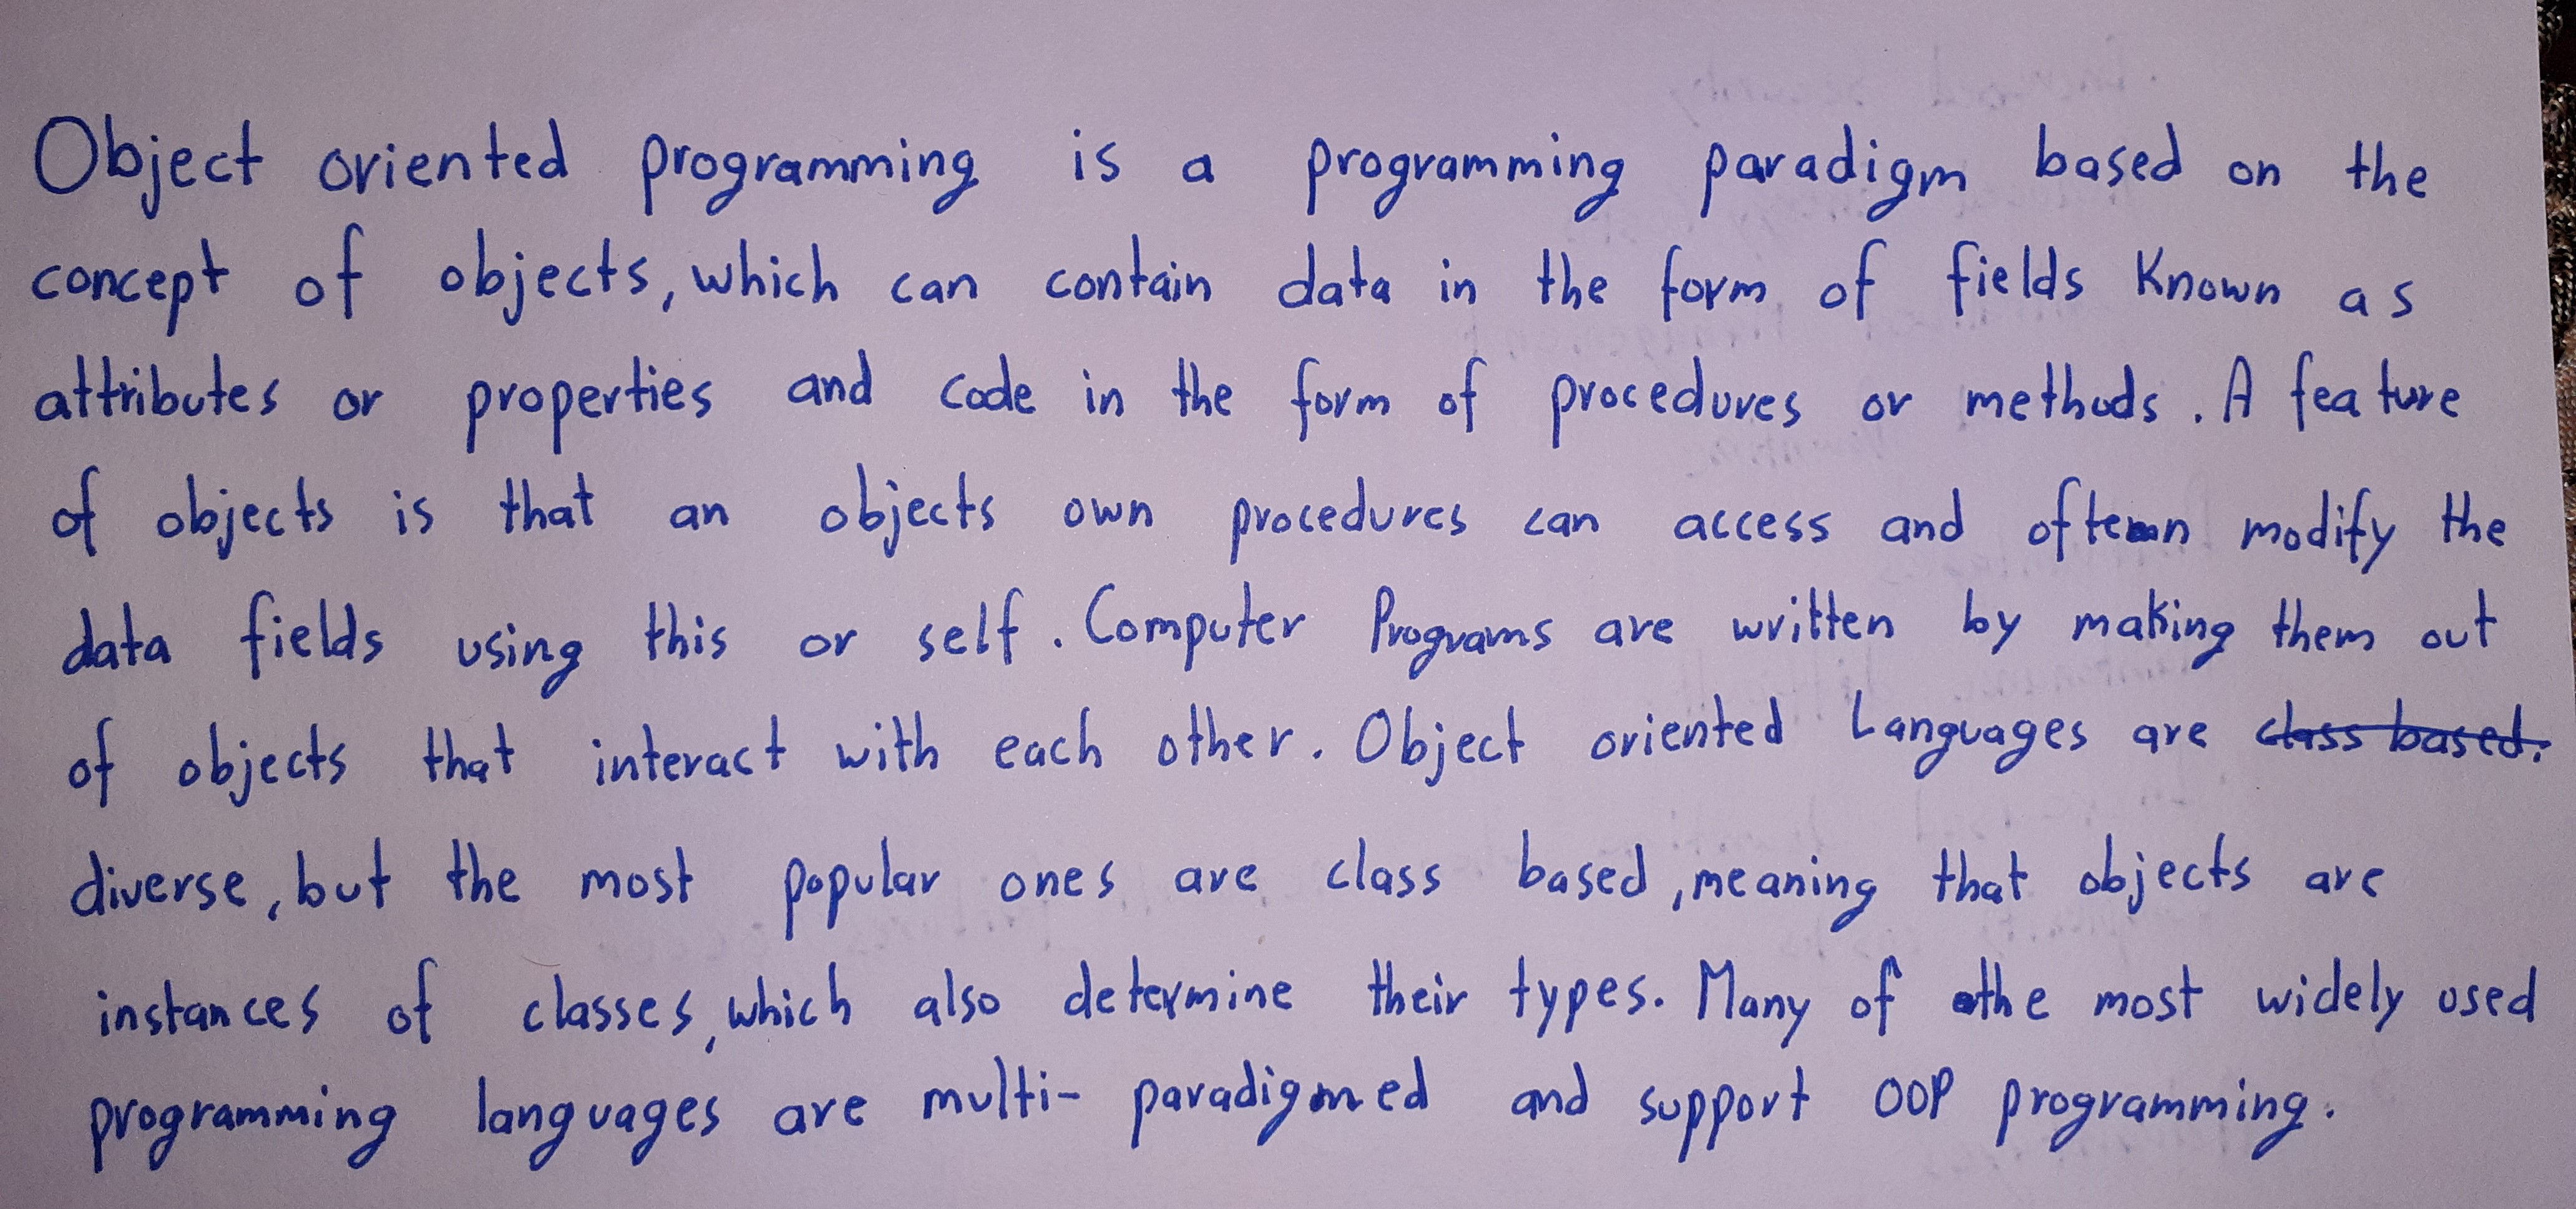 Object oriented programming is a programming paradigm based on the
concept of objects, which can contain data in the form of fields Known as
attributes or properties and code in the form of procedures or methods. A feature
of objects is that an objects own procedures can access and often modify the
data fields using this or self. Computer Programs are written by making them out
of objects that interact with each other. Object oriented Languages are class based.
diverse, but the most popular ones are class based, meaning that objects are
instances of classes, which also determine their types. Many of the most widely used
programming languages are multi- paradigmed and support OOP programming.